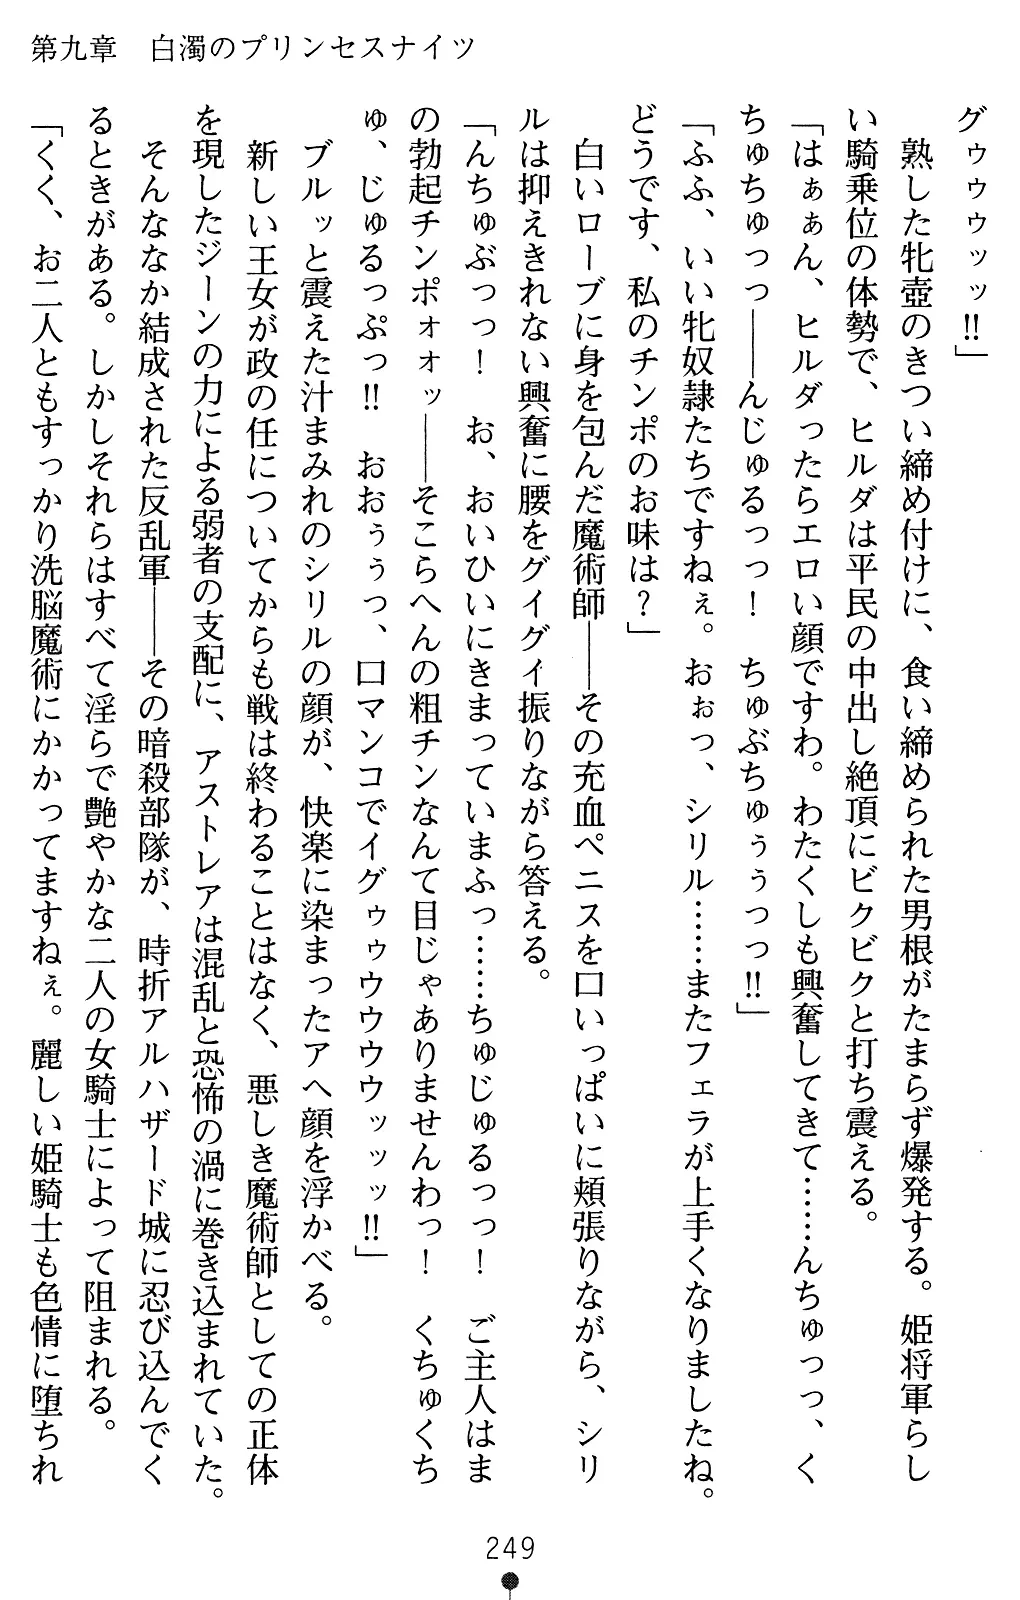 第九章　白濁のプリンセスナイツ
グゥゥゥッッ‼」
　熟した牝壺のきつい締め付けに、食い締められた男根がたまらず爆発する。姫将軍らし
い騎乗位の体勢で、ヒルダは平民の中出し絶頂にビクビクと打ち震える。
「はぁぁん、ヒルダったらエロい顔ですわ。わたくしも興奮してきて……んちゅっっ、く
ちゅちゅっっ――んじゅるっっ！　ちゅぶちゅぅぅっっ‼」
「ふふ、いい牝奴隷たちですねぇ。おぉっ、シリル……またフェラが上手くなりましたね。
どうです、私のチンポのお味は？」
　白いローブに身を包んだ魔術師――その充血ペニスを口いっぱいに頬張りながら、シリ
ルは抑えきれない興奮に腰をグイグイ振りながら答える。
「んちゅぶっっ！　お、おいひいにきまっていまふっ……ちゅじゅるっっ！　ご主人はま
の勃起チンポォォッ――そこらへんの粗チンなんて目じゃありませんわっ！　くちゅくち
ゅ、じゅるっぷっ‼　おおぅぅっ、口マンコでイグゥゥウウウウッッッ‼」
　ブルッと震えた汁まみれのシリルの顔が、快楽に染まったアヘ顔を浮かべる。
　新しい王女が政の任についてからも戦は終わることはなく、悪しき魔術師としての正体
を現したジーンの力による弱者の支配に、アストレアは混乱と恐怖の渦に巻き込まれていた。
　そんななか結成された反乱軍――その暗殺部隊が、時折アルハザード城に忍び込んでく
るときがある。しかしそれらはすべて淫らで艶やかな二人の女騎士によって阻まれる。
「くく、お二人ともすっかり洗脳魔術にかかってますねぇ。麗しい姫騎士も色情に堕ちれ
249